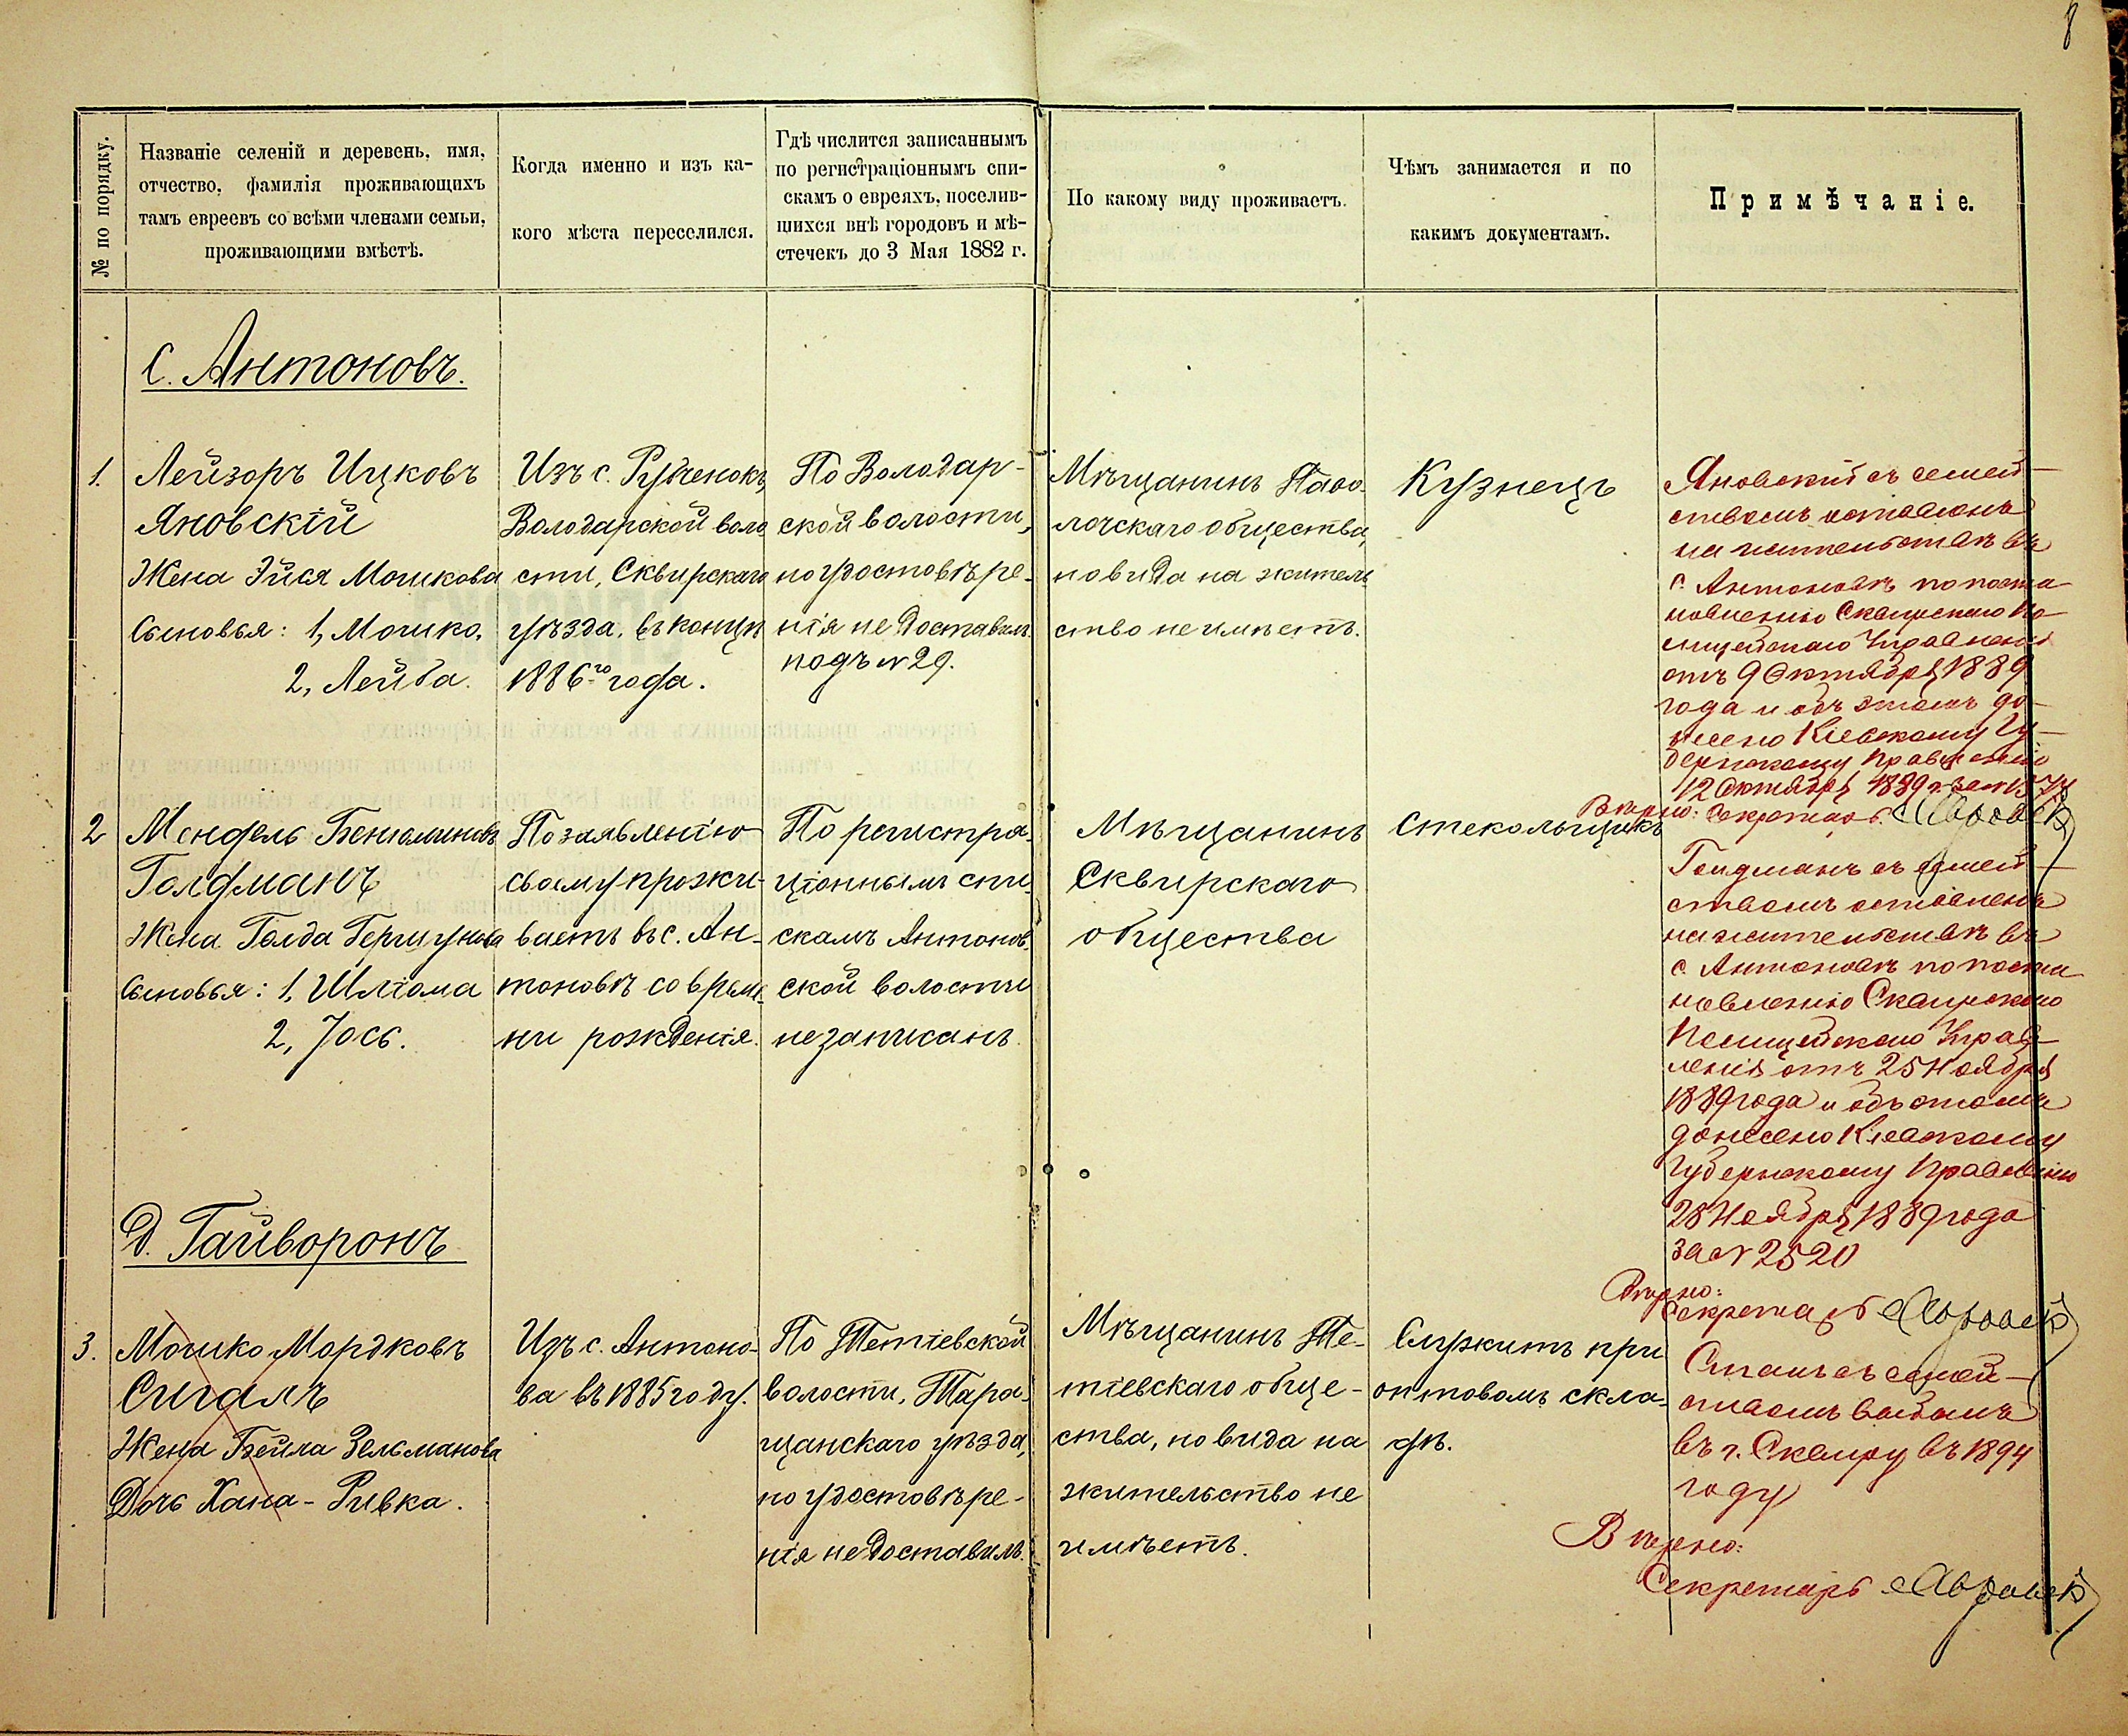 8
№ по порядку.
Названіе селеній и деревень, имя,
отчество, фамилія проживающихъ
тамъ евреевъ со всѣми членами семьи,
проживающими вмѣстѣ.
Когда именно и изъ ка-
кого мѣста переселился.
Гдѣ числится записаннымъ
по регистраціоннымъ спи-
скамъ о евреяхъ, поселив-
шихся внѣ городовъ и мѣ-
стечекъ до 3 Мая 1882 г.
По какому виду проживаетъ.
Чѣмъ занимается и по
какимъ документамъ.
Примѣчаніе.
С. Антоновъ.
1.
Лейзоръ Ицковъ
Яновскій
Жена Эйся Мошкова
Сыновья: 1, Мошко,
2, Лейба.
Изъ с. Рубченокъ,
Володарской воло
сти, Сквирскаго
уѣзда, въ концѣ
1886го года.
По Володар-
ской волости,
но удостовѣре-
нія не доставилъ
подъ № 29.
Мѣщанинъ Паво-
лочскаго общества,
но вида на житель
ство не имѣетъ.
Кузнецъ
Яновскій съ семей-
ствомъ оставленъ
на жительствѣ въ
с. Антоновѣ по поста
новленію Сквирскаго По-
лицейскаго Управленія
отъ 9 Октября 1889
года и объ этомъ до-
несено Кіевскому Гу-
бернскому Правленію
12 Октября 1889 г. за №
Вѣрно: Секретарь
2
Мендель Бенюминовъ
Голдманъ
Жена Голда Гершунова
Сыновья: 1, Шліома
2, Іось.
По заявленію
своему прожи-
ваетъ въ с. Ан-
тоновѣ со време-
ни рожденія.
По регистра-
ціоннымъ спи-
скамъ Антонов-
ской волости
не записанъ.
Мѣщанинъ
Сквирскаго
общества
Стекольщикъ
Голдманъ съ семей-
ствомъ оставленъ
на жительствѣ въ
с. Антоновѣ по поста
новленію Сквирскаго
Полицейскаго Управ-
ленія отъ 25 Ноября
1889 года и объ этомъ
донесено Кіевскому
Губернскому Правленію
28 Ноября 1889 года
за № 2520
Вѣрно:
Секретарь
Д. Гайворонъ
3.
Мошко Мордковъ
Сигалъ
Жена Бейла Зельманова
Дочь Хана-Ривка.
Изъ с. Антоно-
ва въ 1885 году.
По Тетіевской
волости, Тара-
щанскаго уѣзда,
но удостовѣре-
нія не доставилъ.
Мѣщанинъ Те-
тіевскаго обще-
ства, но вида на
жительство не
имѣетъ.
Служитъ при
оптовомъ скла-
дѣ.
Сигалъ съ семей-
ствомъ выбылъ
въ г. Сквиру въ 1894
году
Вѣрно:
Секретарь